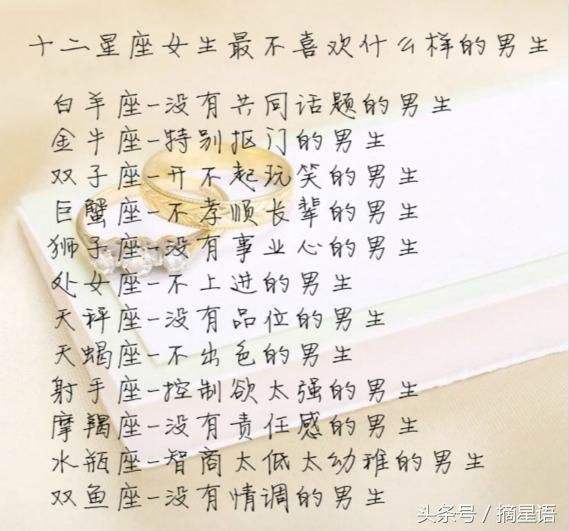 十二星座女生最不喜欢什么样的男生
白羊座-没有共同话题的男生
金牛座-特别抠门的男生
双子座-开不起玩笑的男生
巨蟹座-不孝顺长辈的男生
狮子座-没有事业心的男生
处女座-不上进的男生
天秤座-没有品位的男生
天蝎座-不出色的男生
射手座-控制欲太强的男生
摩羯座-没有责任感的男生
水瓶座-智商太低太幼稚的男生
双鱼座-没有情调的男生
头条号/摘星语